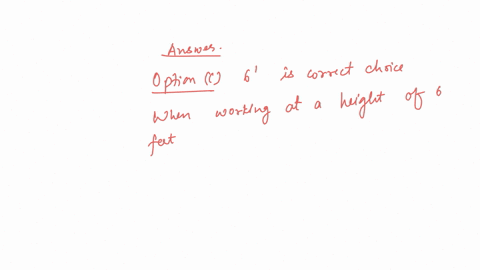 Answer.
Option (C) 6' is correct choice
When working at a height of 6
feet